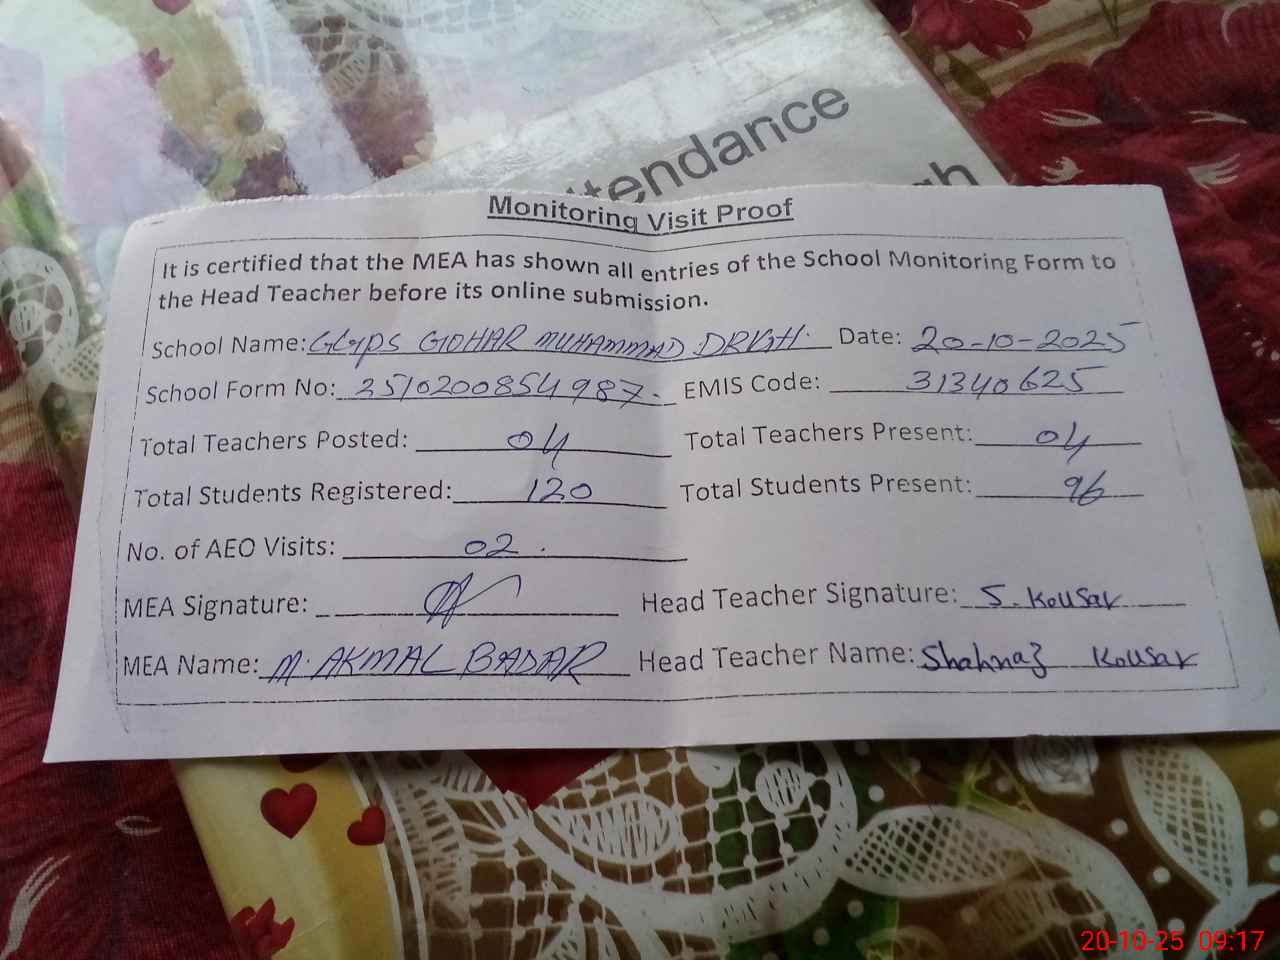 ttendance
gh
Monitoring Visit Proof
It is certified that the MEA has shown all entries of the School Monitoring Form to
the Head Teacher before its online submission.
School Name: GGMPS GOHAR MUHAMMAD DRIGH. Date: 20-10-2025
School Form No: 2510200854987. EMIS Code: 31340625
Total Teachers Posted: 04 Total Teachers Present: 04
Total Students Registered: 120 Total Students Present: 96
No. of AEO Visits: 02.
MEA Signature: Head Teacher Signature: S. Kousar
MEA Name: M. AKMAL BADAR Head Teacher Name: Shahnaz Kousar
20-10-25 09:17